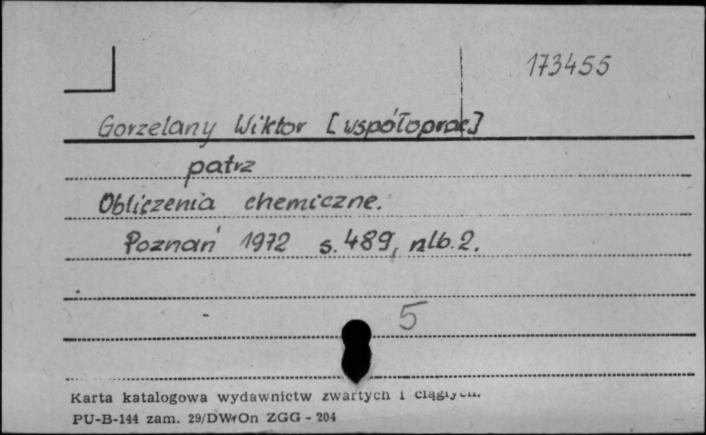 173455
Gorzelany Wiktor [współoprac]
patrz
Obliczenia chemiczne.
Poznań 1972 s. 489, nlb. 2.
5
Karta katalogowa wydawnictw zwartych i ciągłych.
PU-B-144 zam. 29/DWiOn ZGG - 204